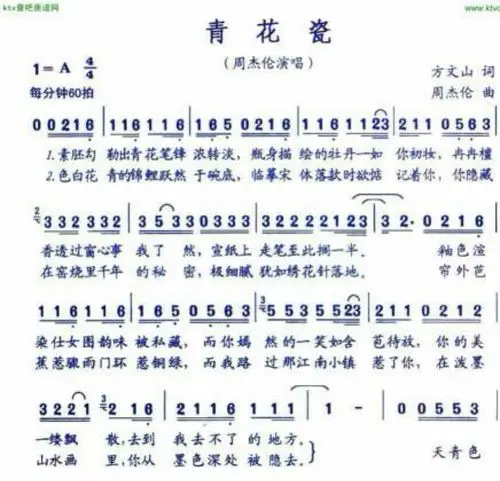 ktv音吧曲谱网
http://www.ktvc
青花瓷
(周杰伦演唱)
1=A 4/4
方文山 词
每分钟60拍
周杰伦 曲
0 0 2 1 6 | 1 1 6 1 1 6 | 1 6 5 0 2 1 6 | 1 1 6 1 1 2 3 | 2 1 1 0 5 6 3 |
1.素胚勾 勒出青花笔锋 浓转淡, 瓶身描 绘的牡丹一如 你初妆, 冉冉檀
2.色白花 青的锦鲤跃然 于碗底, 临摹宋 体落款时欲惦 记着你, 你隐藏
3 3 2 3 3 2 | 3 5 3 3 0 3 3 3 | 5 3 3 5 3 3 2 | 3 2 · 0 2 1 6 |
香透过窗心事 我了 然, 宣纸上 走笔至此搁一半。 釉色渲
在窑烧里千年 的秘 密, 极细腻 犹如绣花针落地。 帘外芭
1 1 6 1 1 6 | 1 6 5 0 2 1 6 | 5 5 3 5 5 2 3 | 2 1 1 0 5 6 3 |
染仕女图韵味 被私藏, 而你嫣 然的一笑如含 苞待放, 你的美
蕉惹骤雨门环 惹铜绿, 而我路 过那江南小镇 惹了你, 在泼墨
3 2 2 1 2 1 6 | 2 1 1 6 1 1 1 | 1 - 0 0 5 5 3 |
一缕飘 散,去到 我去不了 的地方。 天青色
山水画 里,你从 墨色深处 被隐去。